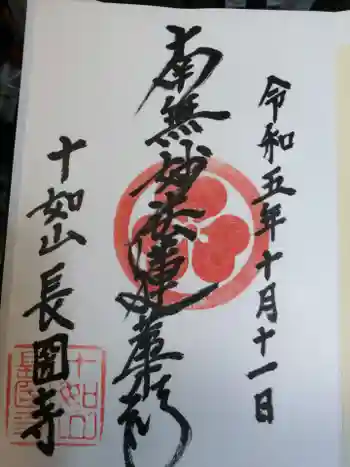 令和五年十月十一日
南無妙法蓮華経
十如山
長圓寺
十如山